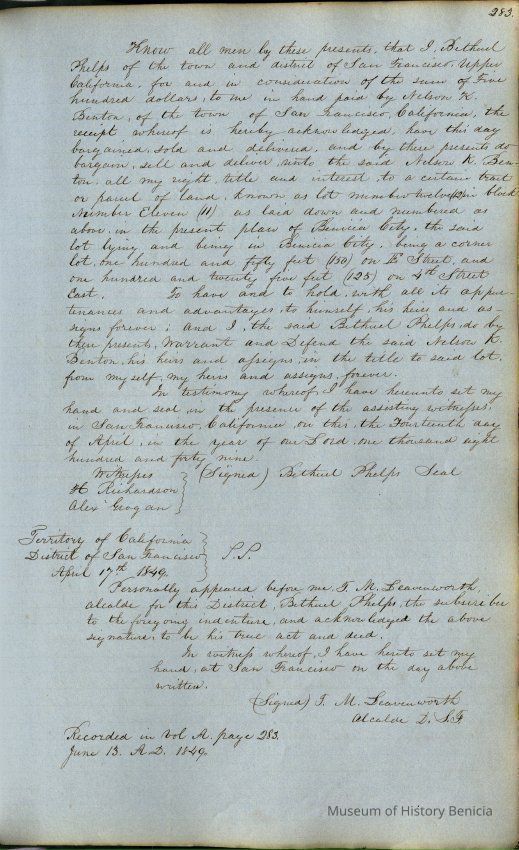 283.
Know all men by these presents, that I, Bethuel
Phelps of the town and district of San Francisco, Upper
California, for and in consideration of the sum of Five
hundred dollars, to me in hand paid by Nelson K.
Benton, of the town of San Francisco, California, the
receipt whereof is hereby acknowledged, have this day
bargained, sold and delivered, and by these presents do
bargain, sell and deliver, unto the said Nelson K. Ben-
ton, all my right, title and interest, to a certain tract
or parcel of land, known as lot number twelve (12) in block
Number Eleven (11) as laid down and numbered as
above, in the present plan of Benicia City, the said
lot lying and being in Benicia City, being a corner
lot, one hundred and fifty feet (150) on Street, and
one hundred and twenty five feet (125) on 4th Street
East. To have and to hold, with all its appur-
tenances and advantages, to himself, his heirs and as-
signs forever; and I, the said Bethuel Phelps, do by
these presents, Warrant and Defend the said Nelson K.
Benton, his heirs and assigns, in the title to said lot,
from myself, my heirs and assigns, forever.
In testimony whereof, I have hereunto set my
hand and seal, in the presence of the assisting witnesses,
in San Francisco, California, on this, the Fourteenth day
of April, in the year of our Lord, one thousand eight
hundred and forty nine.
Witnesses (Signed) Bethuel Phelps Seal
H Richardson
Alex Grogan
Territory of California
District of San Francisco S.S.
April 17th 1849.
Personally appeared before me, T. M. Leavenworth,
alcalde for this District, Bethuel Phelps, the subscriber
to the foregoing indenture, and acknowledged the above
signature, to be his true act and deed.
In witness whereof, I have hereto set my
hand, at San Francisco on the day above
written.
(Signed) T. M. Leavenworth
Alcalde D. S.F.
Recorded in Vol A. page 283.
June 13. A.D. 1849.
Museum of History Benicia